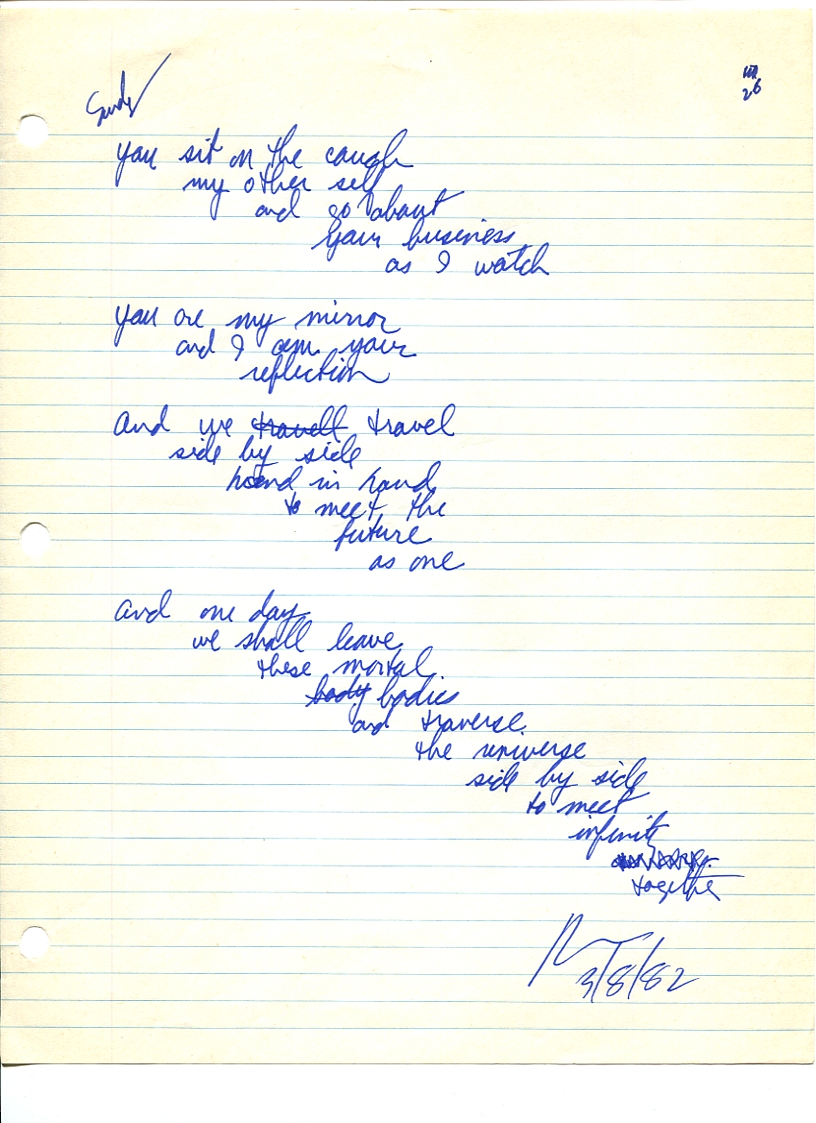 Sindy
III
26
you sit on the cough
my other self
and go about
your business
as I watch
you are my mirror
and I am your
reflection
And we travell travel
side by side
hand in hand
to meet the
future
as one
And one day
we shall leave
these mortal
body bodies
and traverse
the universe
side by side
to meet
infinity
together
3/8/82